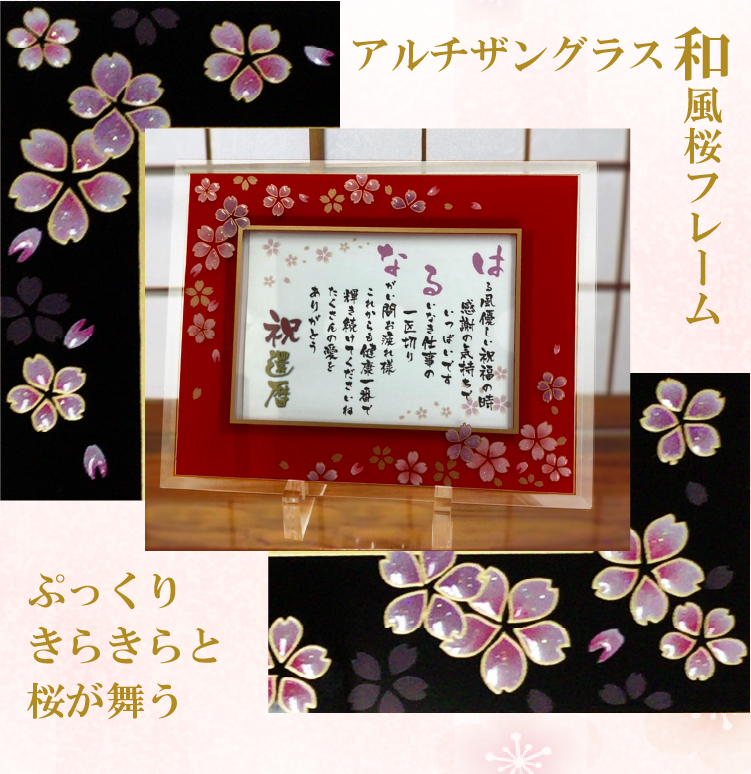 アルチザングラス和
風桜フレーム
はる風優しい祝福の時
感謝の気持ちで
いっぱいです
るいなき仕事の
一区切り
ながい間お疲れ様
これからも健康一番で
輝き続けてくださいね
たくさんの愛を
ありがとう
祝還暦
ぷっくり
きらきらと
桜が舞う